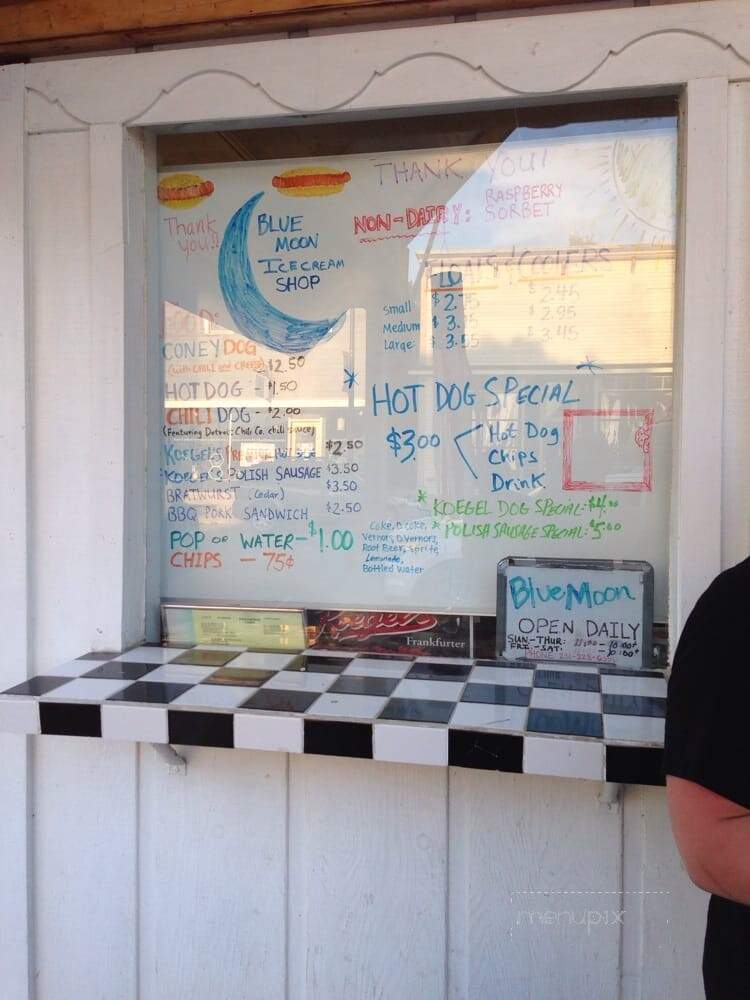 THANK YOU!
Thank you!!
BLUE
MOON
ICE CREAM
SHOP
NON-DAIRY: RASPBERRY
SORBET
Small $2.
Medium $3.
Large 3.
$2.45
$2.95
$3.45
CONEY DOG
(with CHILI and CHEESE) $2.50
HOT DOG - $1.50
CHILI DOG - $2.00
(Featuring Detroit Chili Co. chili sauce)
KOEGEL'S $2.50
KOEGEL'S POLISH SAUSAGE $3.50
BRATWURST (cedar) $3.50
BBQ PORK SANDWICH $2.50
POP or WATER - $1.00
CHIPS - 75¢
Coke, D.Coke,
Vernors, D.Vernors,
Root Beer, Sprite,
Lemonade,
Bottled Water
* HOT DOG SPECIAL *
$3.00 Hot Dog
Chips
Drink
* KOEGEL DOG SPECIAL:
* POLISH SAUSAGE SPECIAL: $5.00
Koegel's
Frankfurter
Blue Moon
OPEN DAILY
SUN-THUR:
FRI-SAT:
menupix